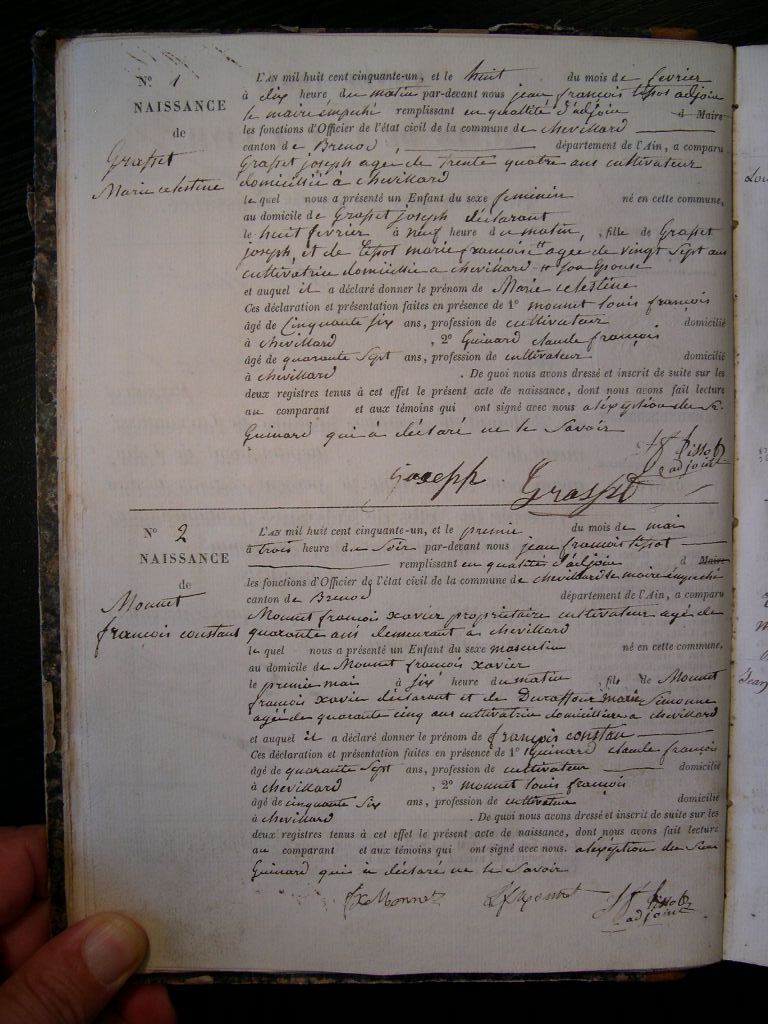 N° 1
NAISSANCE
de
Grasset
Marie celestine
L'AN mil huit cent cinquante-un, et le huit du mois de fevrier
à dix heure du matin par-devant nous jean françois tissot adjoin
le maire empeché remplissant en qualtité d'adjoin d Maire
les fonctions d'Officier de l'état civil de la commune de chevillard
canton de Brenod , département de l'Ain, a comparu
Grasset joseph age de trente quatre ans cultivateur
domicillié à chevillard
le quel nous a présenté un Enfant du sexe feminin né en cette commune,
au domicile de Grasset joseph declarant
le huit fevrier à neuf heure du matin , fille de Grasset
joseph, et de tissot marie françoise # agee de vingt sept ans
cultivatrice domicillie a chevillard # son Epouse
et auquel il a déclaré donner le prénom de Marie celestine
Ces déclaration et présentation faites en présence de 1° monnet louis françois
âgé de Cinquante six ans, profession de cultivateur domicilié
à chevillard , 2° Guinard claude françois
âgé de quarante sept ans, profession de cultivateur domicilié
à chevillard . De quoi nous avons dressé et inscrit de suite sur les
deux registres tenus à cet effet le présent acte de naissance, dont nous avons fait lecture
au comparant et aux témoins qui ont signé avec nous aléxéption de S.
Guinard qui à déclaré ne le Savoir
Jf tissot
adjoint
joseph Grasset
N° 2
NAISSANCE
de
Monnet
francois constant
L'AN mil huit cent cinquante-un, et le premie du mois de mai
à trois heure du Soir par-devant nous jean françois tissot
remplissant en qualites d'adjoin d Maire
les fonctions d'Officier de l'état civil de la commune de chevillard le maire empeché
canton de Brenod département de l'Ain, a comparu
Monnet françois xavier propriétaire cultivateur agé de
quarante ans demeurant à chevillard
le quel nous a présenté un Enfant du sexe masculin né en cette commune,
au domicile de Monnet françois xavier
le premie mai à six heure du matin , fils de Monnet
françois xavier déclarant et de Duraffour marie Simonne
agée de quarante cinq ans cultivatrice domicilière a chevillard
et auquel il a déclaré donner le prénom de françois constan
Ces déclaration et présentation faites en présence de 1° Guinard claude françois
âgé de quarante Sept ans, profession de cultivateur domicilié
à chevillard , 2° monnet louis françois
âgé de cinquante Six ans, profession de cultivateur domicilié
à chevillard . De quoi nous avons dressé et inscrit de suite sur les
deux registres tenus à cet effet le présent acte de naissance, dont nous avons fait lecture
au comparant et aux témoins qui ont signé avec nous. aléxéption du Sieur
Guinard quis à déclaré ne le Savoir
fx Monnet Lf Monnet Jf tissot
adjoint